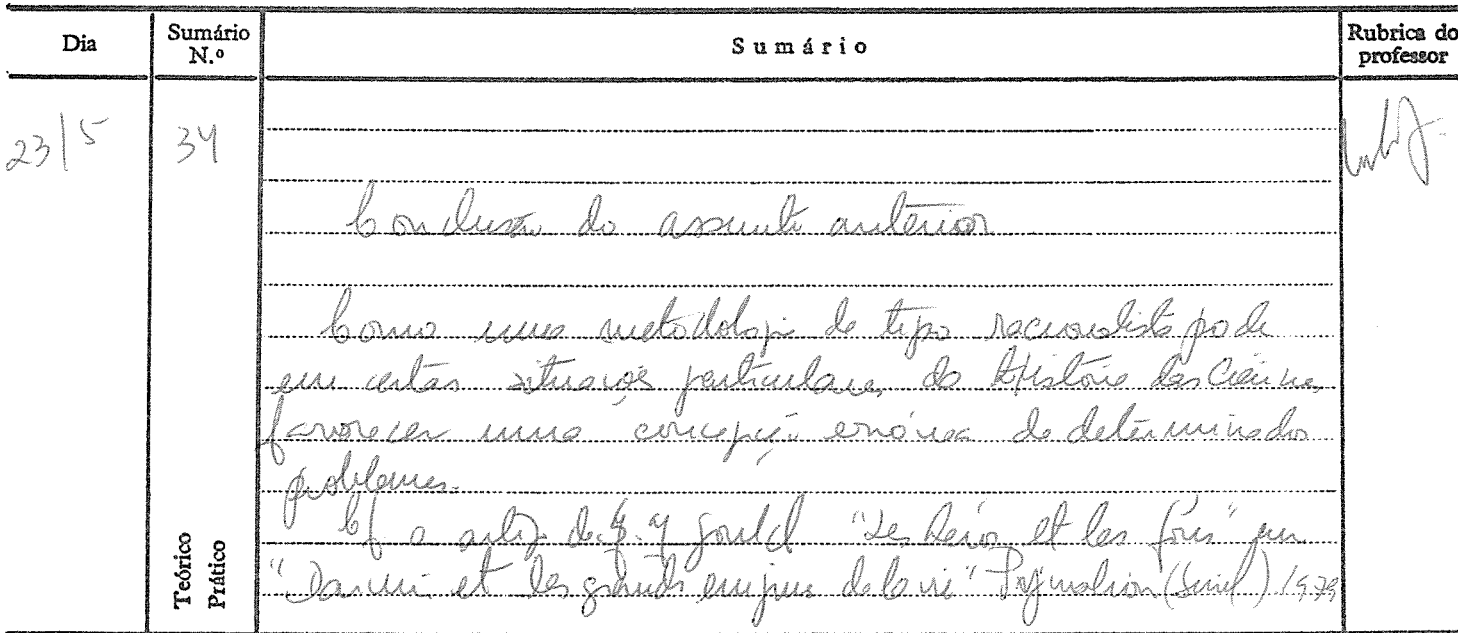 Dia Sumário N.º Sumário Rubrica do professor
23/5 34
Conclusão do assunto anterior
Como uma metodologia de tipo racionalista pode
em certas situações particulares da História das Ciências
favorecer uma concepção errónea de determinados
problemas.
Cf o artigo de Gould "Les héros et les fous" em
"Darwin et les grands enigmes de la vie" Pygmalion (Seuil) 1979
Teórico
Prático